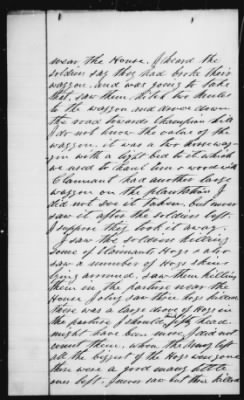 near the House. I heard the
soldiers say they had broke their
waggon and was going to take
that, saw them hitch two mules
to the waggon and drove down
the road towards Champion hill
I do not know the value of the
waggon, it was a two horse wag-
gon with a light bed to it which
we used to haul
Claimant had another large
waggon on the plantation I
did not see it taken, but never
saw it after the soldiers left.
I suppose they took it away.
I saw the soldiers killing
some of Claimant Hogs & also
saw a number of Hogs skins
lying around, saw them killing
them in the pasture near the
House I only saw three hogs killed
there was a large drove of Hogs in
the pasture I should fifty head
might have been more I did not
count them, when the Army left
all the biggest of the Hogs was gone
there were a good many little
ones left. I never saw but three killed